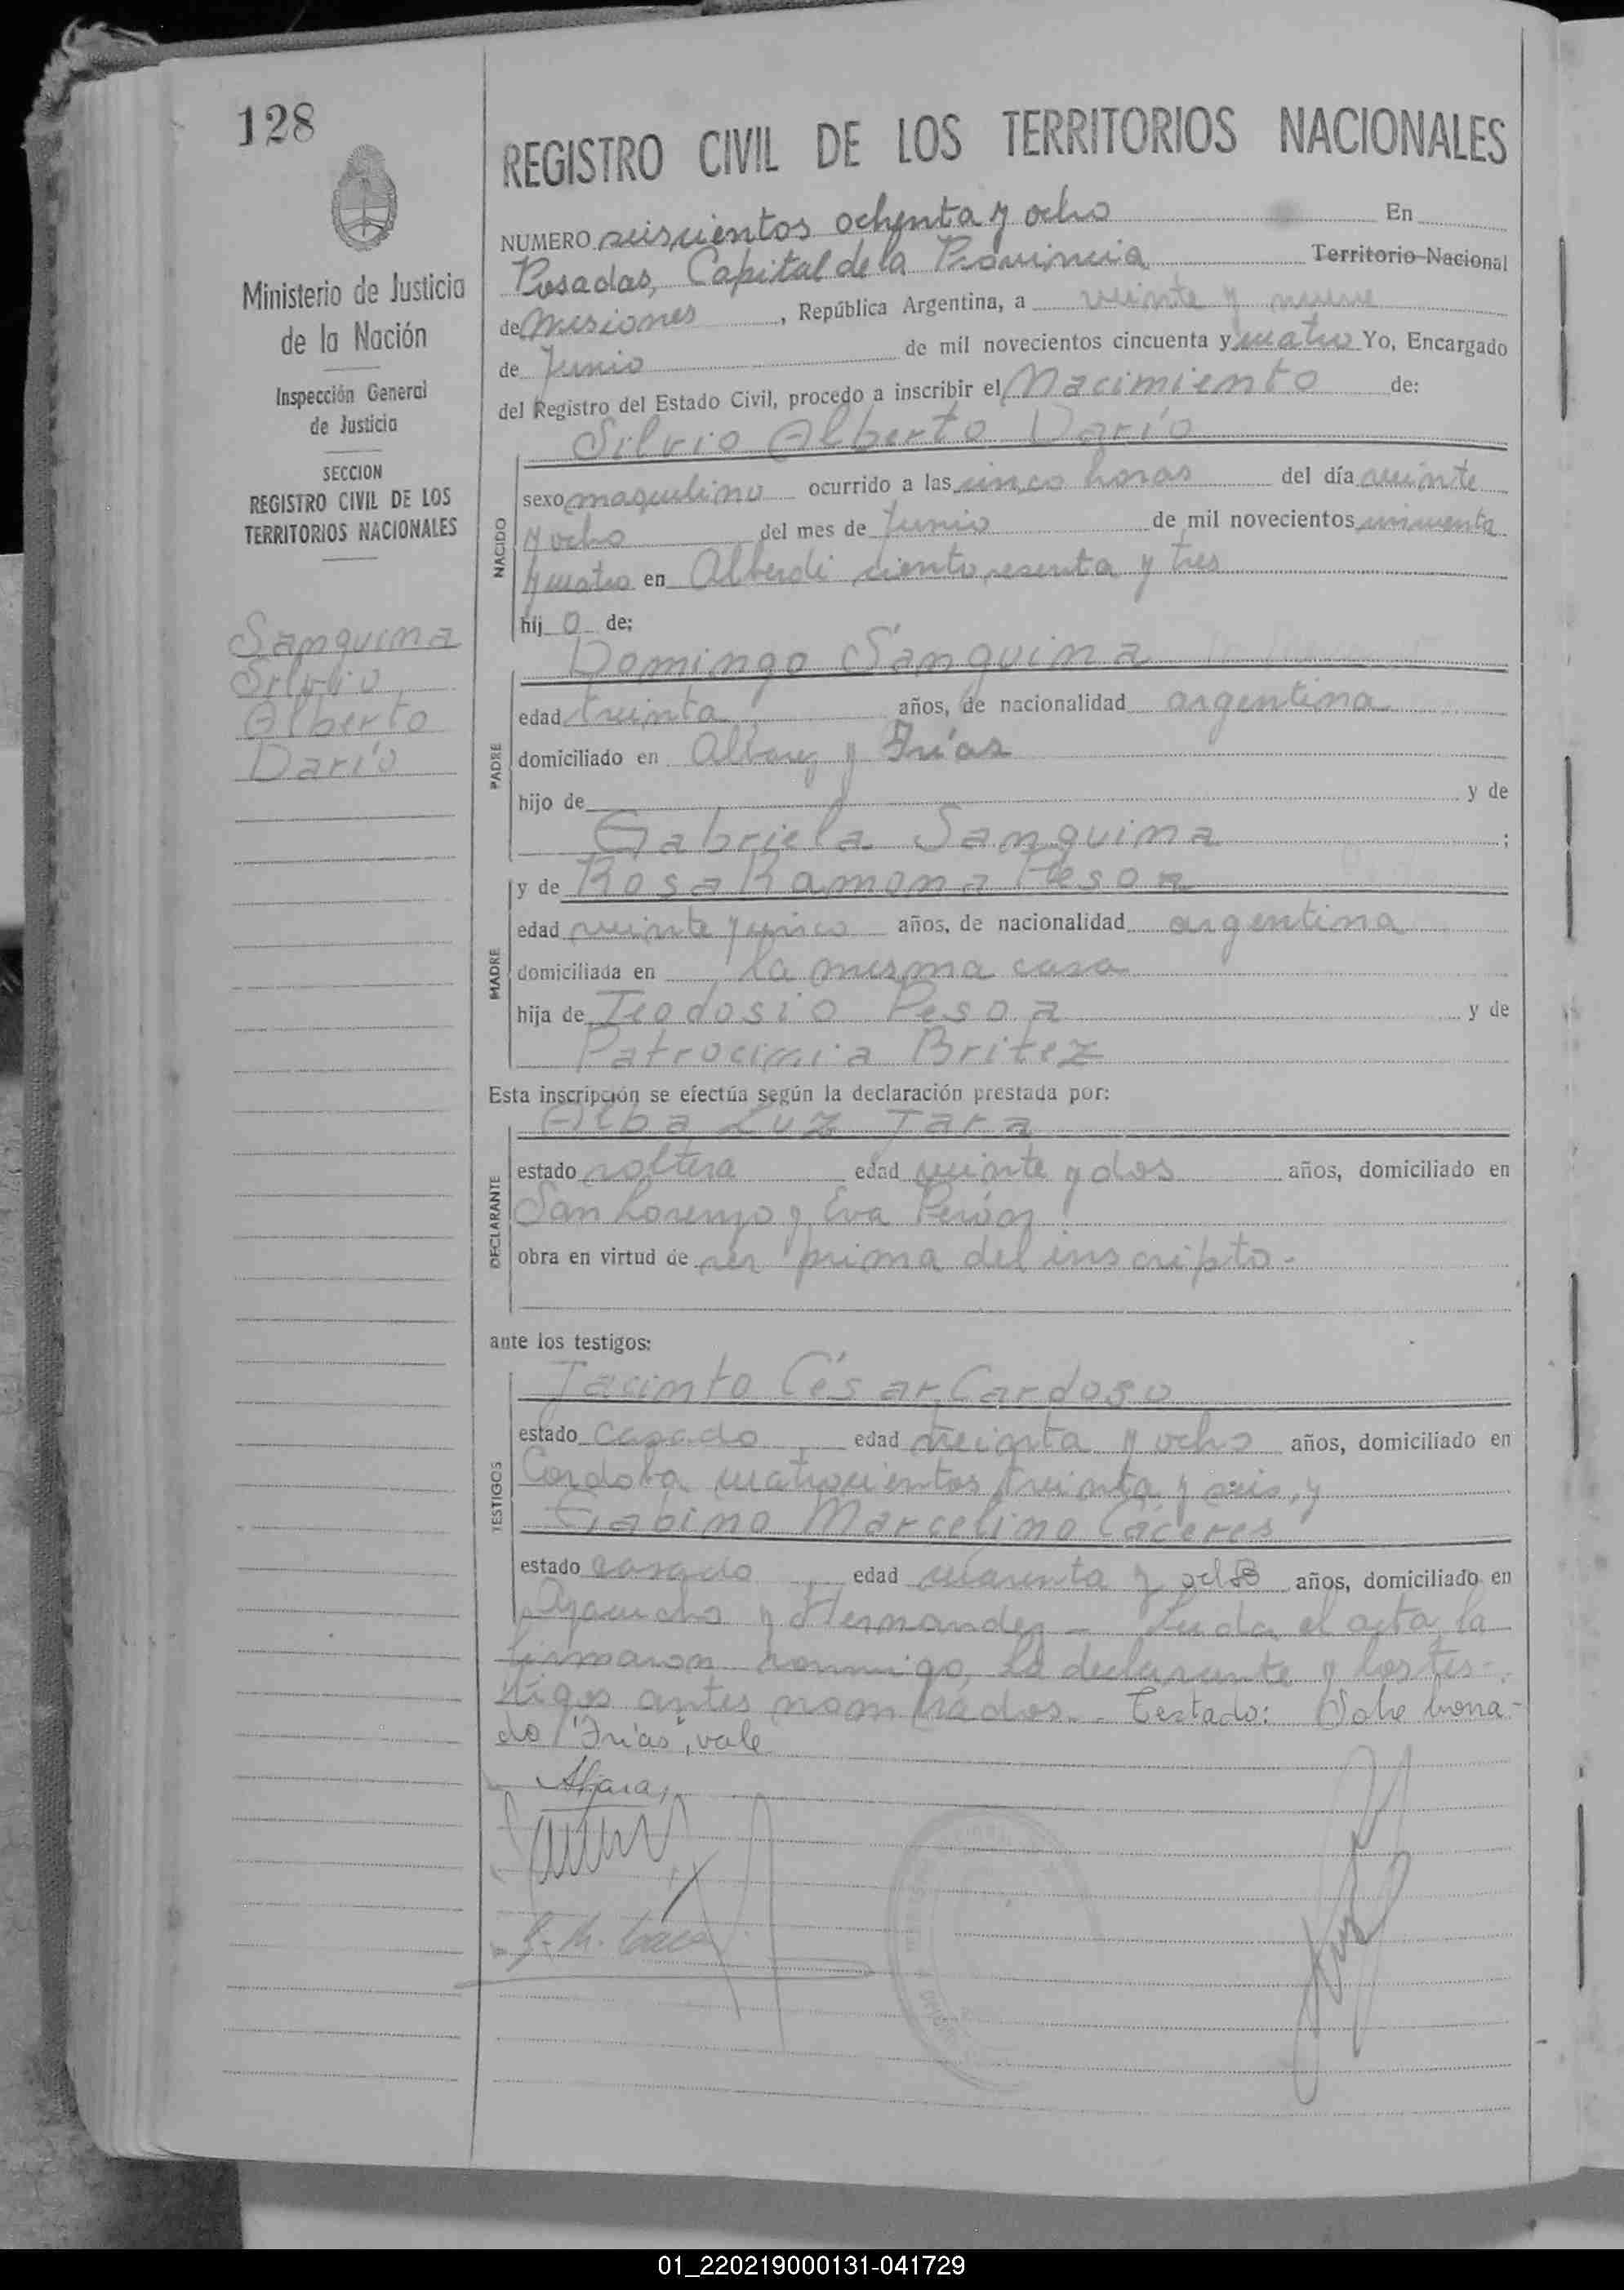 128
REGISTRO CIVIL DE LOS TERRITORIOS NACIONALES
Ministerio de Justicia
de la Nación
Inspección General
de Justicia
SECCION
REGISTRO CIVIL DE LOS
TERRITORIOS NACIONALES
Sanguina
Silvio
Alberto
Darío
NUMERO seiscientos ochenta y ocho En
Posadas, Capital de la Provincia Territorio Nacional
de Misiones, República Argentina, a veinte y nueve
de Junio de mil novecientos cincuenta y cuatro Yo, Encargado
del Registro del Estado Civil, procedo a inscribir el Nacimiento de:
Silvio Alberto Darío
NACIDO
sexo masculino ocurrido a las cinco horas del día veinte
y ocho del mes de Junio de mil novecientos cincuenta
y cuatro en Alberdi ciento sesenta y tres
hij o de:
Domingo Sanguina
PADRE
edad treinta años, de nacionalidad argentina
domiciliado en Alvarez y Frías
hijo de y de
Gabriela Sanguina ;
y de Rosa Ramona Pesoa
MADRE
edad veinte y cinco años, de nacionalidad argentina
domiciliada en la misma casa
hija de Teodosio Pesoa y de
Patrocinia Britez
Esta inscripción se efectúa según la declaración prestada por:
Alba Luz Jara
DECLARANTE
estado soltera edad veinte y dos años, domiciliado en
San Lorenzo y Eva Perón
obra en virtud de ser prima del inscripto.-
ante los testigos:
Jacinto César Cardoso
TESTIGOS
estado casado edad treinta y ocho años, domiciliado en
Cordoba cuatrocientos treinta y seis, y
Gabino Marcelino Cáceres
estado casado edad cuarenta y ocho años, domiciliado en
Ayacucho y Hernandez - Leida el acta, la
firmaron conmigo, la declarante y los tes-
tigos antes nombrados.- Testado: Sobre borra-
do "Frías", vale
AJara
G. M. Cace
01_220219000131-041729